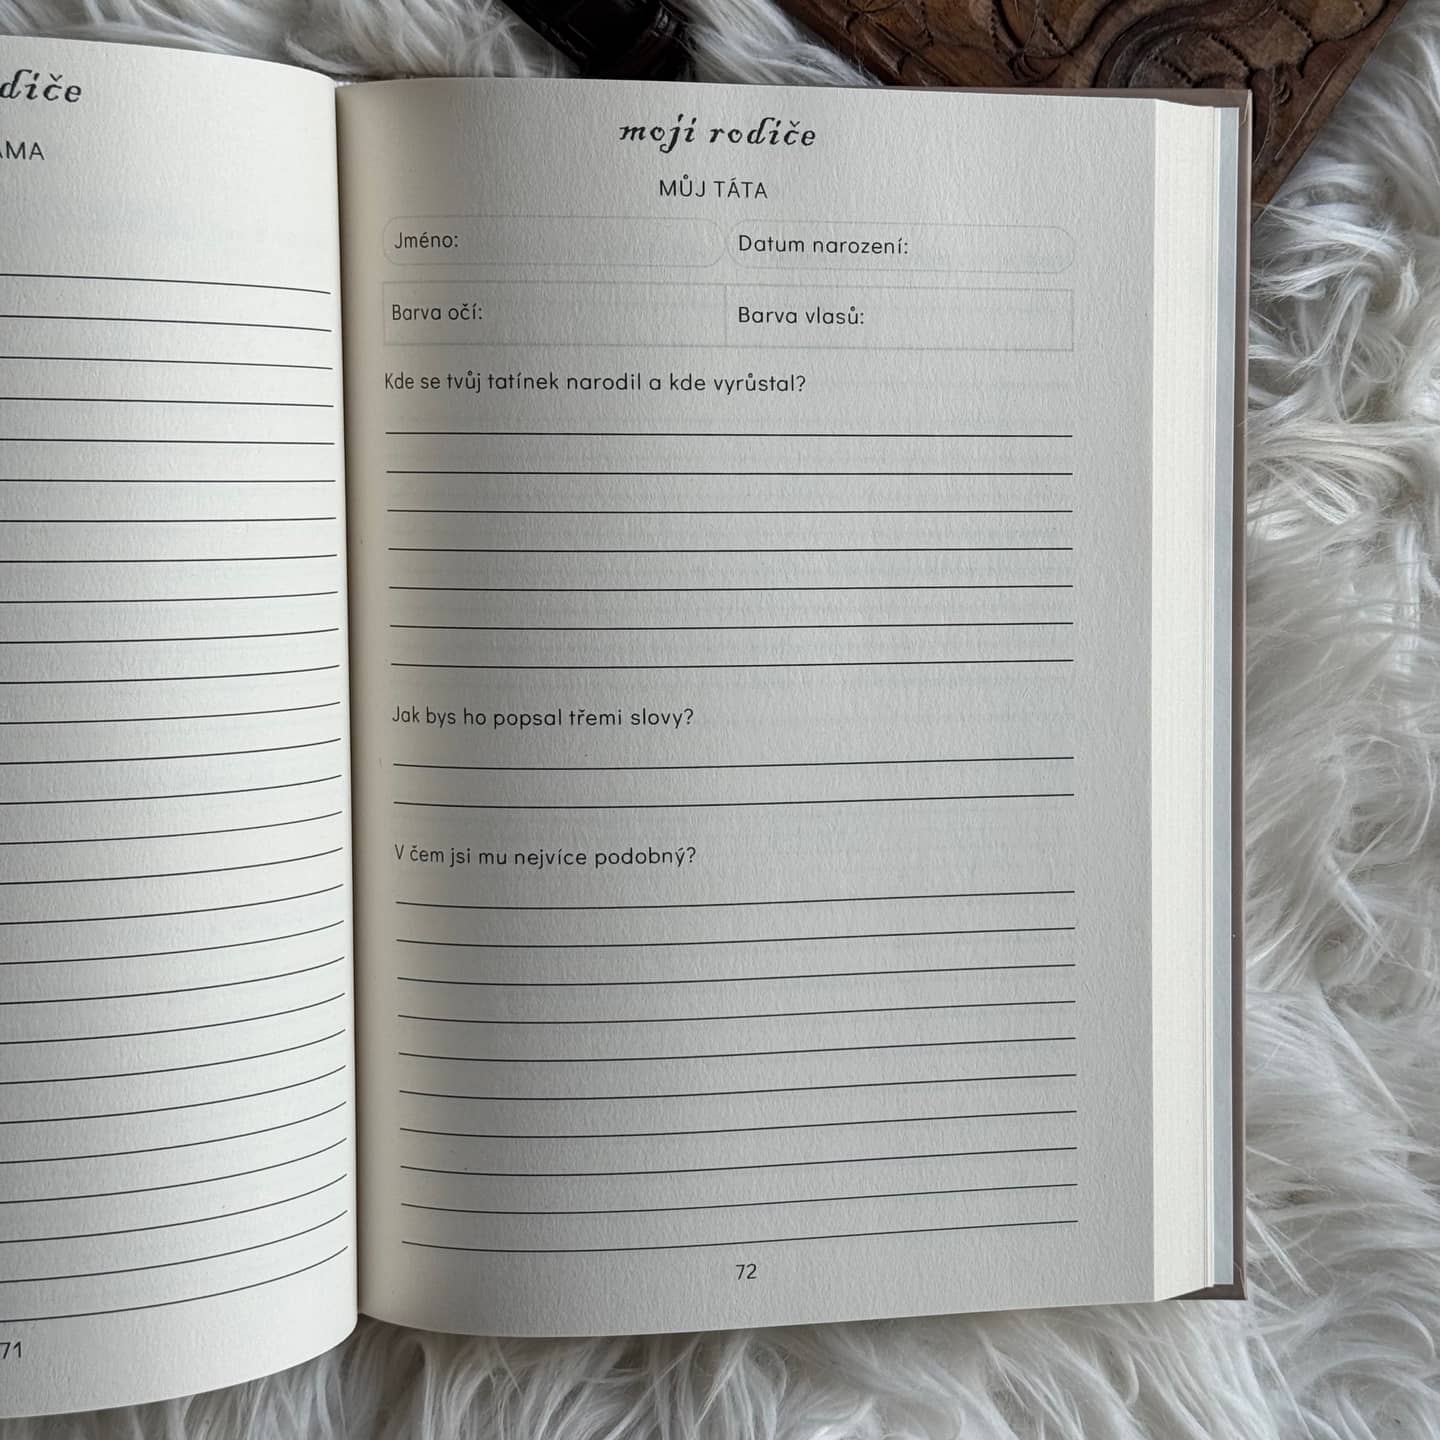 mojí rodiče
MŮJ TÁTA
Jméno:
Datum narození:
Barva očí:
Barva vlasů:
Kde se tvůj tatínek narodil a kde vyrůstal?
Jak bys ho popsal třemi slovy?
V čem jsi mu nejvíce podobný?
72
71